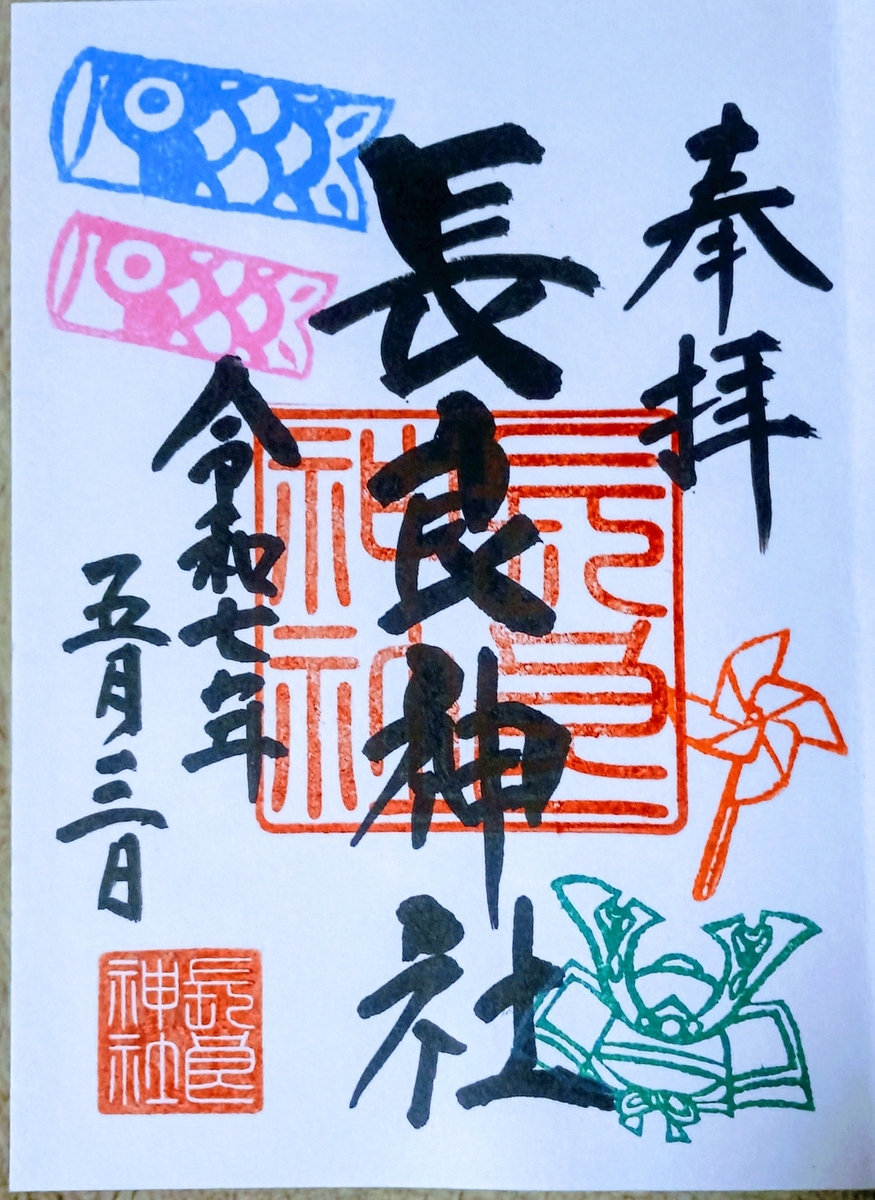 奉拝
長良神社
令和七年
五月三日
長良神社
長良神社